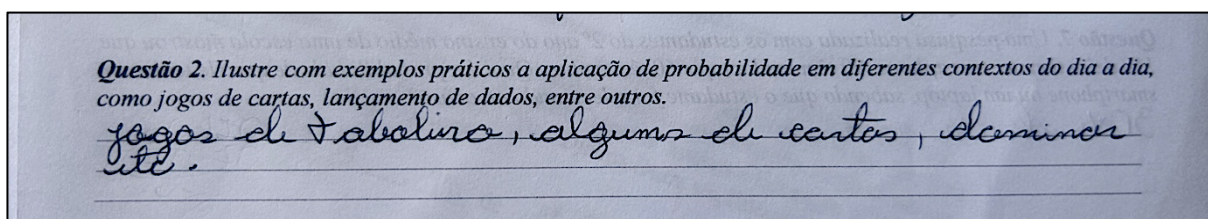 Questão 2. Ilustre com exemplos práticos a aplicação de probabilidade em diferentes contextos do dia a dia,
como jogos de cartas, lançamento de dados, entre outros.
jogos de taboliro, alguns de cartas, dominor
etc.